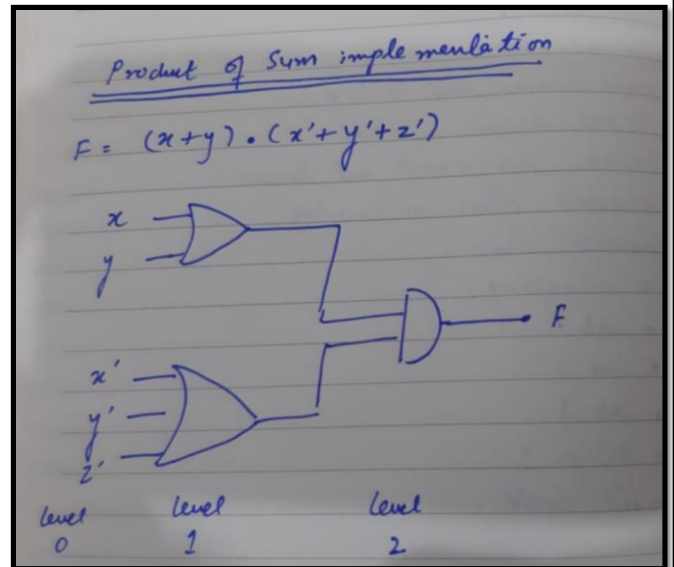 Product of Sum implementation
F = (x+y) . (x'+y'+z')
x
y
F
x'
y'
z'
level level level
0 1 2